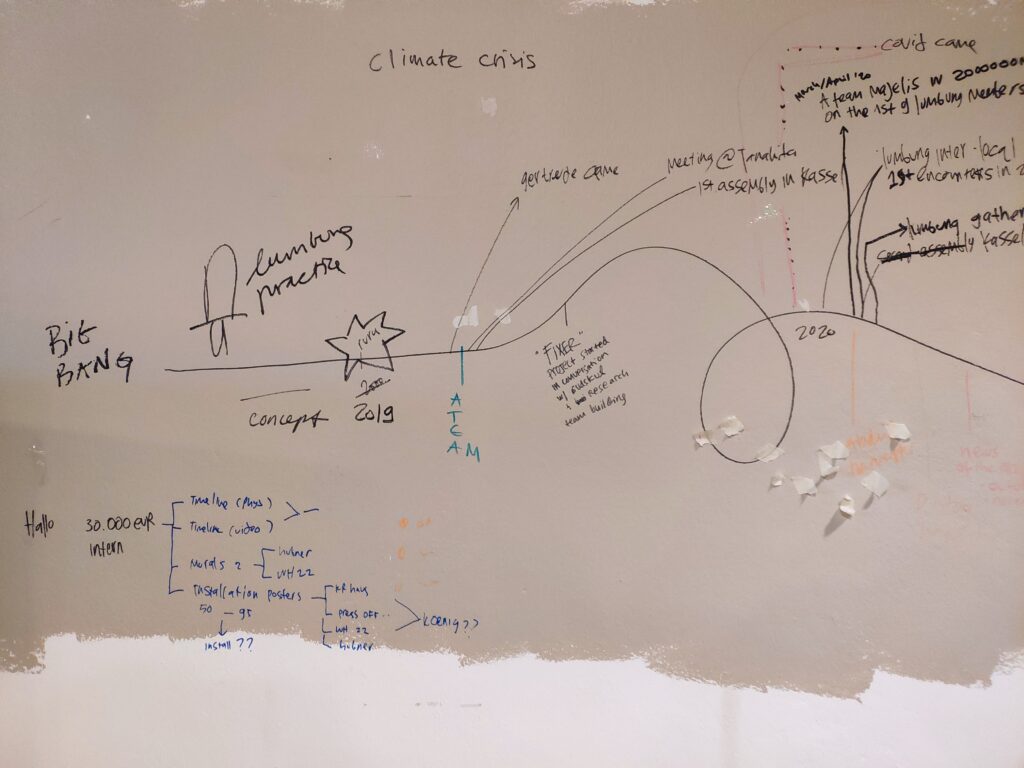 Climate crisis
covid came
March/April '20
A team Majelis w 2000000
on the 1st 9 lumbung members
gertrude came
Meeting @
1st assembly in Kassel
lumbung inter-local
1st encounters in 2
lumbung gather
assembly Kassel
lumbung
practice
BIG
BANG
ruru
concept
2019
A TEAM
"FIXER"
project started
in conversation
w/ Gudskul
research
team building
2020
news
of the
Hallo
30.000 EUR
intern
Timeline (phys)
Timeline (video)
Murals 2
hubner
WH 22
Installation posters
50 - 95
install ??
RR haus
press off..
WH 22
hubner
KOENIG??